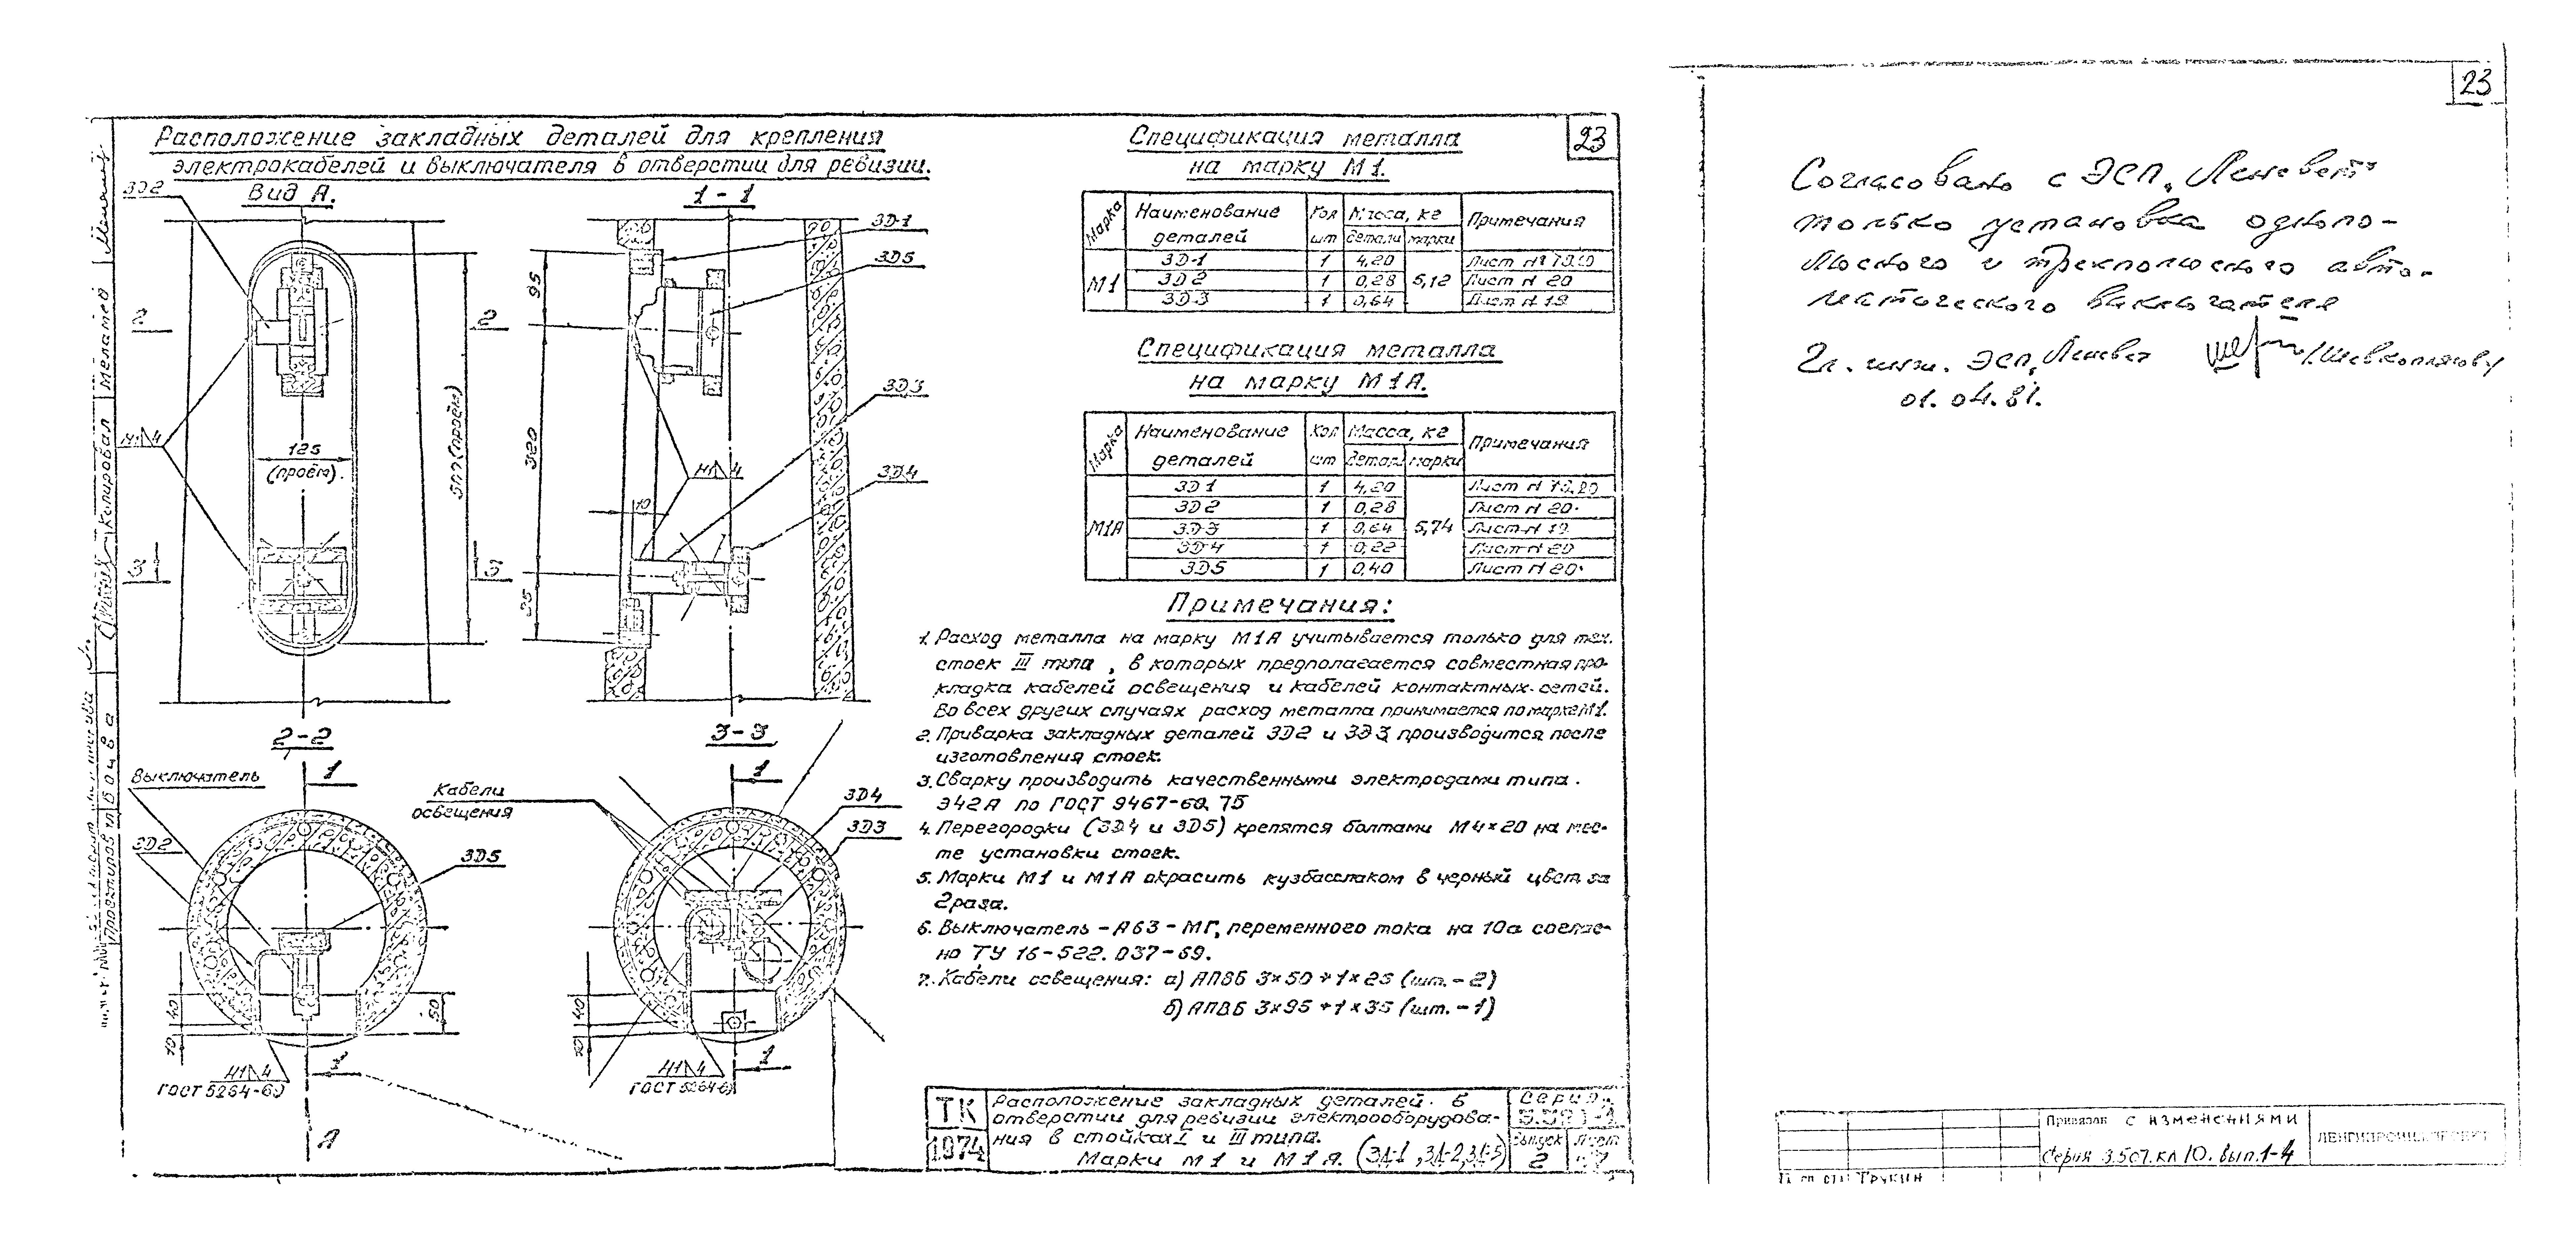 23
Расположение закладных деталей для крепления
электрокабелей и выключателя в отверстии для ревизии.
Вид А.
ЗД2
2
2
Н1 4
125
(проём).
3
3
1-1
ЗД-1
ЗД5
95
ЗД3
320
Н1 4
ЗД4
10
2-2
Выключатель
1
ЗД2
ЗД5
40
10
50
Н1 4
ГОСТ 5264-69
1
А
3-3
1
Кабели
освещения
ЗД4
ЗД3
40
Н1 4
ГОСТ 5264-69
1
Спецификация металла
на марку М1.
Марка Наименование деталей Кол шт Масса, кг детали марки Примечания
М1 ЗД-1 1 4,20 5,12 Лист №
ЗД 2 1 0,28 Лист № 20
ЗД-3 1 0,64 Лист № 19
Спецификация металла
на марку М1А.
Марка Наименование деталей Кол шт Масса, кг детал марки Примечания
М1А ЗД1 1 4,20 5,74 Лист № 19,20
ЗД2 1 0,28 Лист № 20
ЗД-3 1 0,64 Лист № 19
ЗД-4 1 0,22 Лист № 20
ЗД5 1 0,40 Лист № 20
Примечания:
1. Расход металла на марку М1А учитывается только для тех.
стоек III типа, в которых предполагается совместная про-
кладка кабелей освещения и кабелей контактных сетей.
Во всех других случаях расход металла принимается по марке М1.
2. Приварка закладных деталей ЗД2 и ЗД3 производится после
изготовления стоек.
3. Сварку производить качественными электродами типа.
Э42А по ГОСТ 9467-60. 75
4. Перегородки (ЗД4 и ЗД5) крепятся болтами М4×20 на мес-
те установки стоек.
5. Марки М1 и М1А окрасить кузбасслаком в черный цвет за
2 раза.
6. Выключатель - А63 - МГ, переменного тока на 10а соглас-
но ТУ 16-522.037-69.
7. Кабели освещения: а) АПВБ 3×50+1×25 (шт.-2)
б) АПВБ 3×95+1×35 (шт.-1)
ТК
1974
Расположение закладных деталей в
отверстии для ревизии электрооборудова-
ния в стойках I и III типа.
Марки М1 и М1А. (ЗД-1, ЗД-2, ЗД-5)
Серия
Выпуск
2
Лист
Копировал
23
Согласовано с ЭСП "Ленсвет"
только установка однопо-
люсного и трехполюсного авто-
матического выключателя
Гл. инж. ЭСП "Ленсвет
01.04.81.
Привязан с изменениями
Серия 3.507.кл 10. вып.1-4